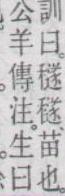 訓曰。穟穟。苗也
公羊傳注。生曰